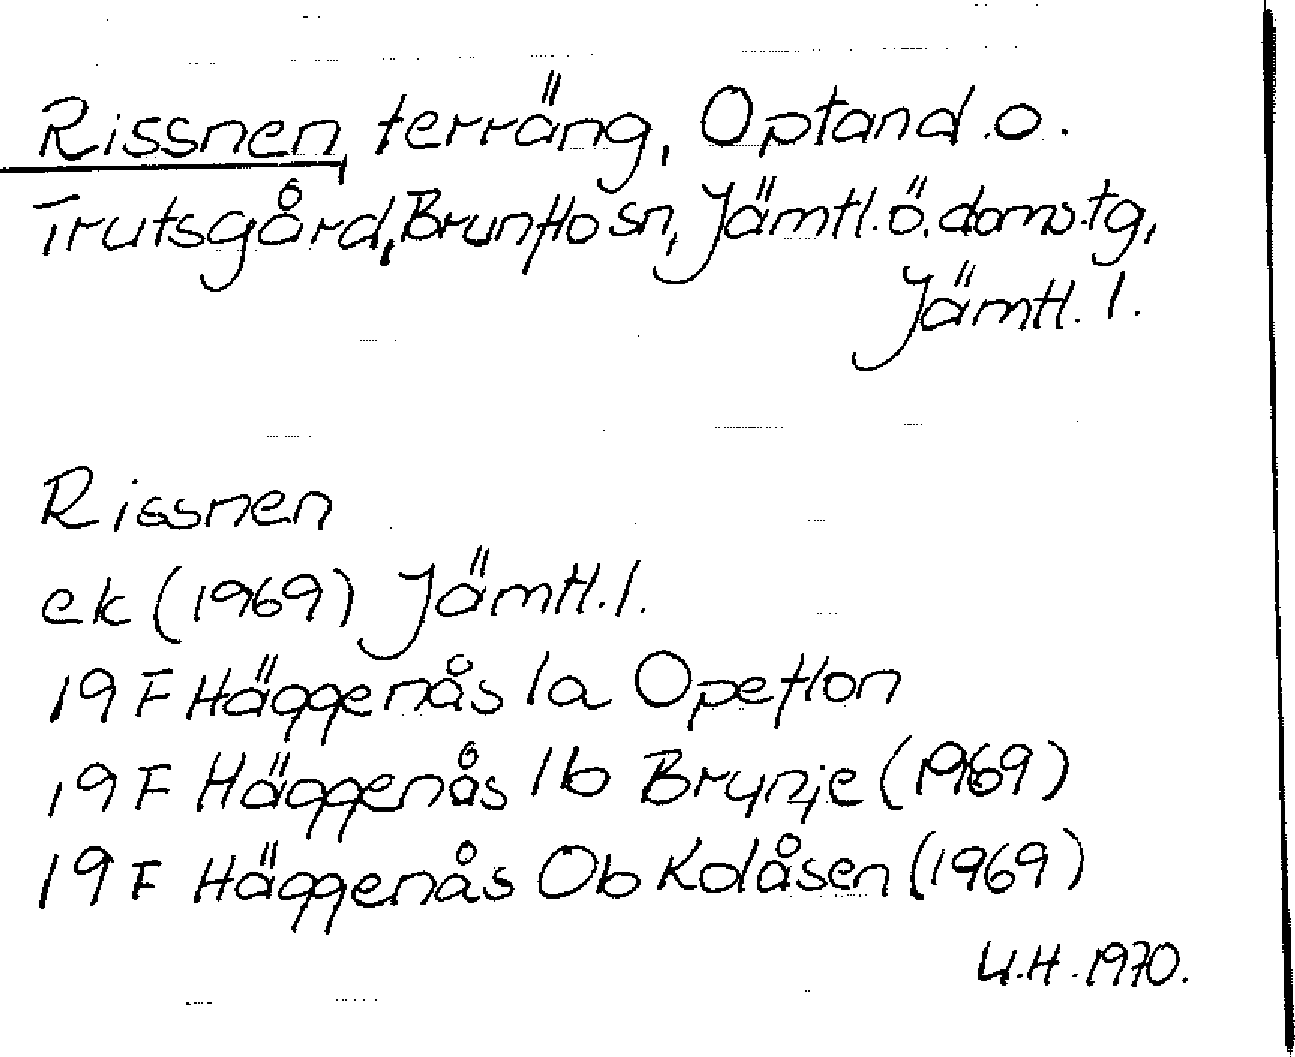 Rissnen, terräng, Optand o.
Trutsgård, Brunflo sn, Jämtl. ö. doms.tg,
Jämtl. l.
Rissnen
ek (1969) Jämtl. l.
19 F Häggenås 1a Opeflon
19 F Häggenås 1b Brynje (1969)
19 F Häggenås 0b Kolåsen (1969)
U.H. 1970.